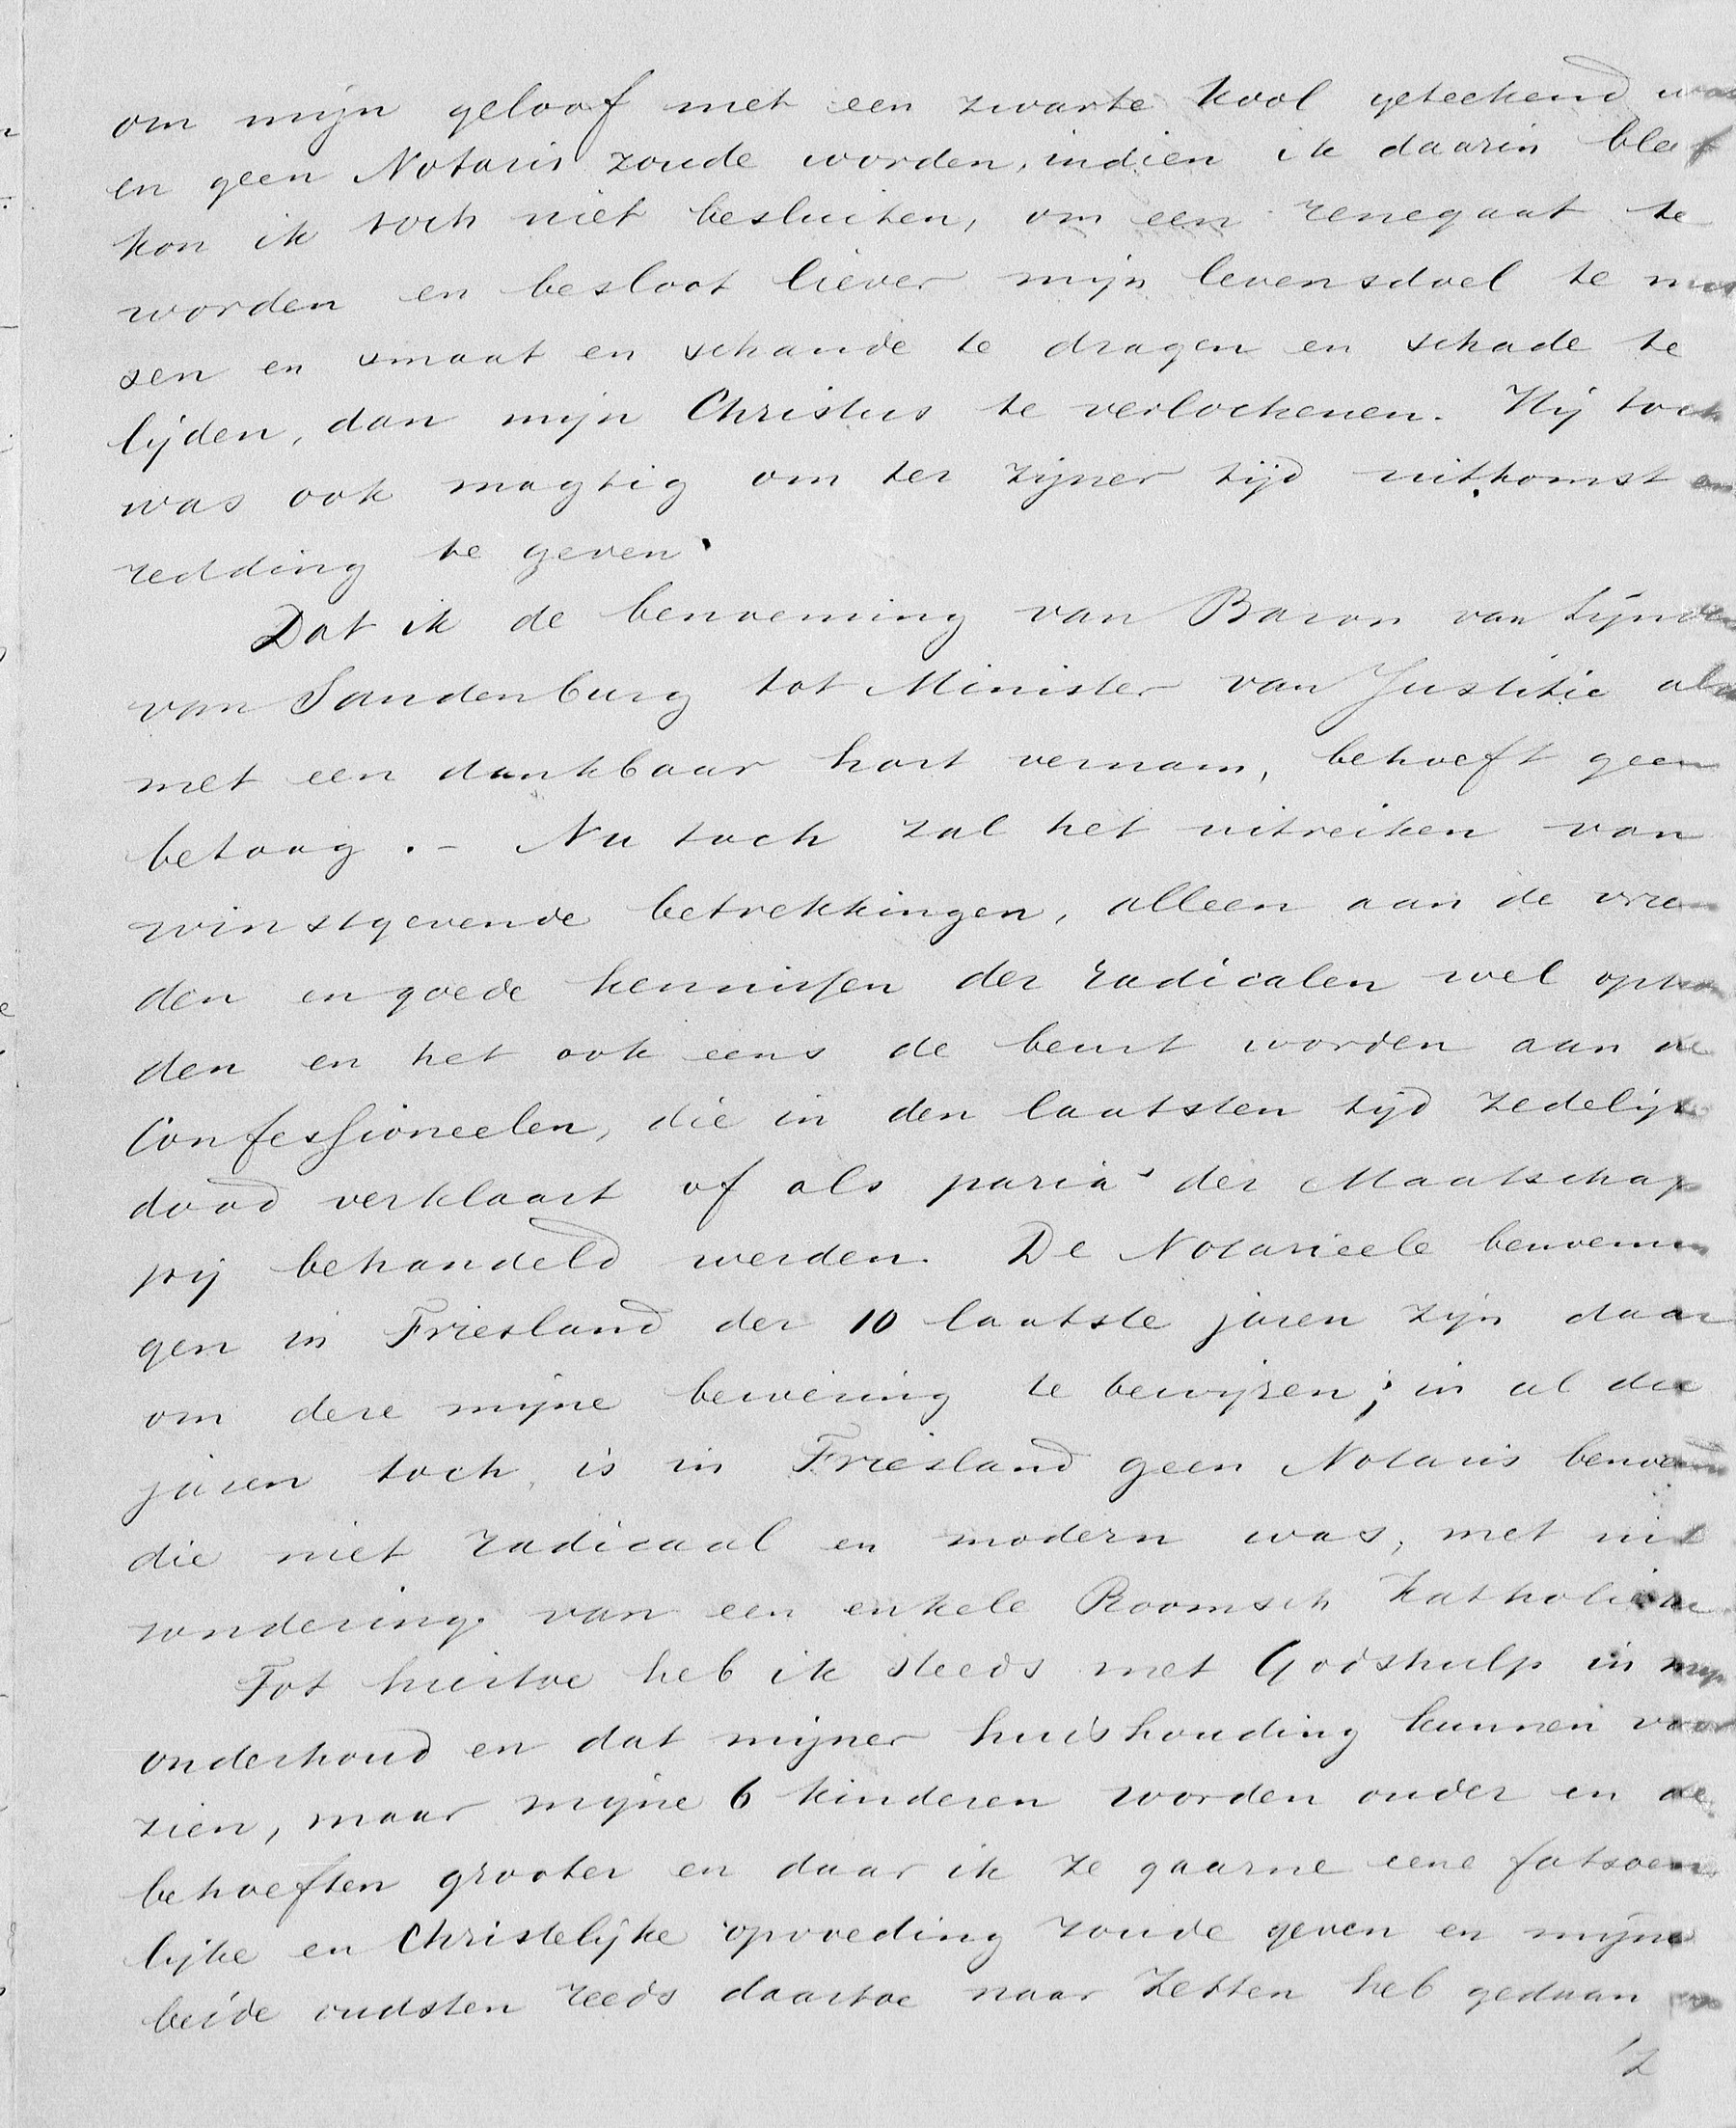 om mijn geloof met een zwarte kool geteekend was
en geen Notaris zoude worden, indien ik daarin bleef
kon ik toch niet besluiten, om een renegaat te
worden en besloot liever mijn levensdoel te mis
sen en smaat en schande te dragen en schade te
lijden, dan mijn Christus te verlochenen. Hij toch
was ook magtig om ter zijner tijd uitkomst en
redding te geven.
Dat ik de benoeming van Baron van Lijnden
van Sandenburg tot Minister van Justitie
met een dankbaar hart vernam, behoeft geen
betoog. - Nu toch zal het uitreiken van
winstgevende betrekkingen, alleen aan de vrien
den en goede kennissen der radicalen wel ophou
den en het ook eens de beurt worden aan de
Confessioneelen, die in den laatsten tijd zedelijk
dood verklaart of als paria's der Maatschap
pij behandeld werden. De Notarieele benoemin
gen in Friesland der 10 laatste jaren zijn daar
om deze mijne bewering te bewijzen; in al die
jaren toch, is in Friesland geen Notaris benoemd
die niet radicaal en modern was, met uit
zondering van een enkele Roomsch Katholieke
Tot hiertoe heb ik steeds met Godshulp in mijn
onderhoud en dat mijner huishouding kunnen voor
zien, maar mijne 6 kinderen worden ouder en de
behoeften grooter en daar ik ze gaarne eene fatsoen
lijke en Christelijke opvoeding zoude geven en mijne
beide oudsten reeds daartoe naar Zetten heb gedaan